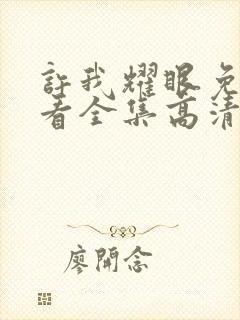 許我耀眼免
看全集高清
廖開念